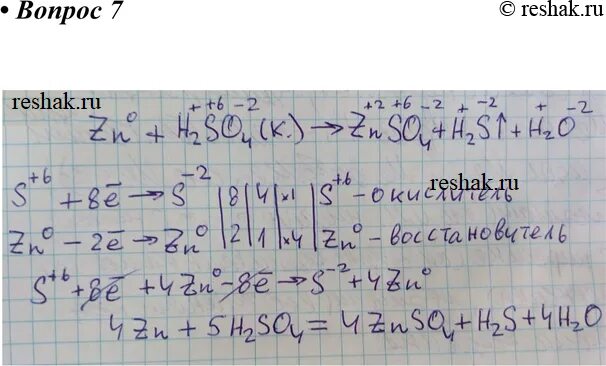 • Вопрос 7
© reshak.ru
reshak.ru
Zn⁰ + H₂⁺S⁺⁶O₄⁻²(к.) → Zn⁺²S⁺⁶O₄⁻² + H₂⁺S⁻²↑ + H₂⁺O⁻²
reshak.ru
S⁺⁶ + 8ē → S⁻² | 8 | 4 | ×1 | S⁺⁶ – окислитель
Zn⁰ – 2ē → Zn⁰ | 2 | 1 | ×4 | Zn⁰ – восстановитель
S⁺⁶ + 8ē + 4Zn⁰ – 8ē → S⁻² + 4Zn⁰
4Zn + 5H₂SO₄ = 4ZnSO₄ + H₂S + 4H₂O